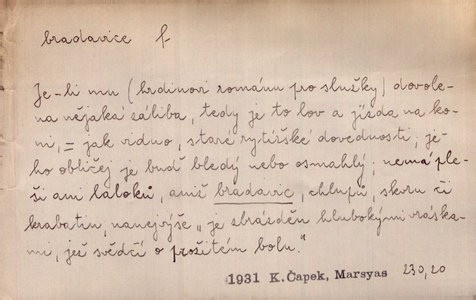 bradavice f
Je-li mu (hrdinovi románu pro služky) dovole-
na nějaká záliba, tedy je to lov a jízda na ko-
ni, = jak vidno, staré rytířské dovednosti; je-
ho obličej je buď bledý nebo osmahlý; nemá ple-
ši ani laloků, aniž bradavic, chlupů, skvrn či
krabatin, nanejvýše „je zbrázděn hlubokými vráska-
mi, jež svědčí o prožitém bolu."
1931 K. Čapek, Marsyas 230,20